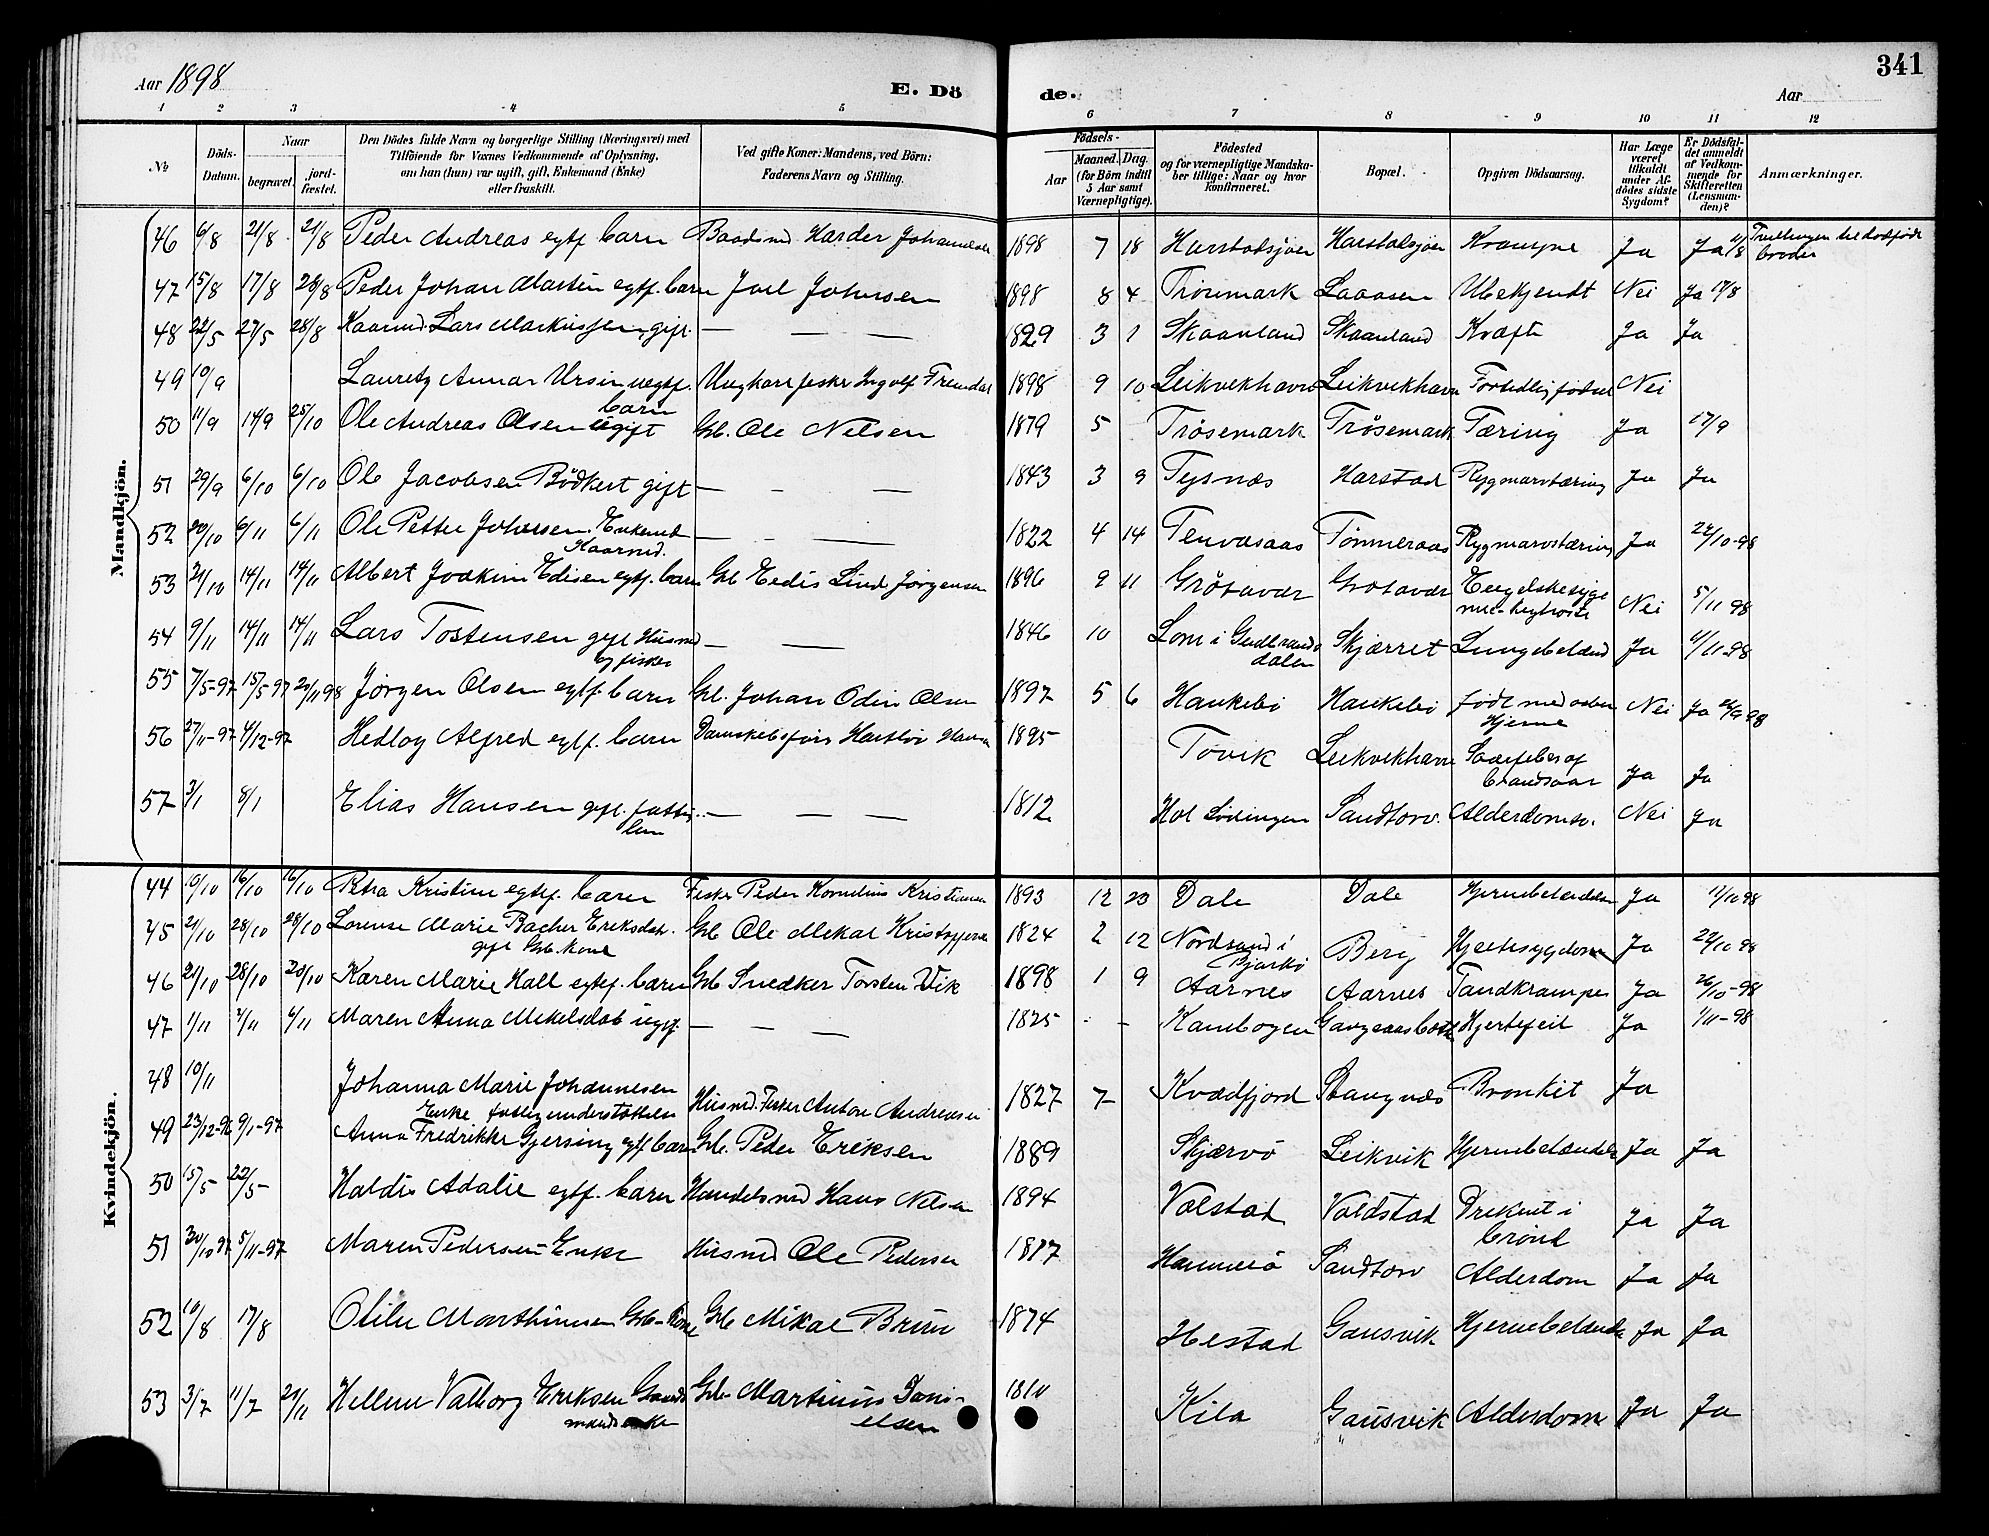 Aar 1898
E. Dö
de.
Aar
341
1 2 3 4 5 6 7 8 9 10 11 12
No
Döds-Datum.
Naar
begravet.
jord-fæstet.
Den Dödes fulde Navn og borgerlige Stilling (Næringsvei) med
Tilföiende for Voxnes Vedkommende af Oplysning,
om han (hun) var ugift, gift, Enkemand (Enke)
eller fraskilt.
Ved gifte Koner: Mandens, ved Börn:
Faderens Navn og Stilling.
Födsels-
Aar
Maaned. Dag.
(for Börn indtil
5 Aar samt
Værnepligtige).
Födested
og for værnepligtige Mandska-
ber tillige: Naar og hvor
konfirmeret.
Bopæl.
Opgiven Dödsaarsag.
Har Læge
været
tilkaldt
under Af-
dödes sidste
Sygdom?
Er Dödsfal-
det anmeldt
af Vedkom-
mende for
Skifteretten
(Lensman-
den)?
Anmærkninger.
Mandkjön.
46 6/8 21/8 21/8 Peder Andreas egtf. barn Harder 1898 7 18 Harstadsjøen Harstadsjøen Krampe Ja Ja 11/8
47 15/8 17/8 28/8 Peder Johan Martin egtf. barn Joel Johnsen 1898 8 4 Laaasen Ubekjendt Nei Ja 17/8
48 22/5 27/5 28/8 Kaarmd. Lars Markussen, gift. — — — 1829 3 1 Skaanland Skaanland Kræft Ja Ja
49 10/9 Lauretz Annar Ursin uegtf. barn Ungkarl fisker Ingolf 1898 9 10 Leikvekhavn Leikvekhavn Nei
50 11/9 14/9 25/10 Ole Andreas Olsen ugift Gb. Ole Nelsen 1879 5 Trøsemark Trøsemark Tæring Ja 17/9
51 29/9 6/10 6/10 Ole Jacobsen Bødkert gift — - — 1843 3 9 Tysnæs Harstad Rygmarvstæring Ja Ja
52 20/10 6/11 6/11 Ole Petter Johnsen Enkemd. Kaarmd. — - — 1822 4 14 Tenvasaas Tømmeraas Rygmarvstæring Ja 22/10-98
53 21/10 14/11 14/11 Albert Joakim Edisen egtf. barn Gb Edis Lind Jørgensen 1896 9 11 Grøtavær Grotavær Engelskesyge med kighoste Nei 5/11 98
54 9/11 14/11 14/11 Lars Tostensen gift Husmd og fisker — — 1846 10 Lom i Gudbrandsdalen Skjærret Lungebetænd Ja 11/11-98
55 7/5-97 15/5 97 20/11 98 Jørgen Olsen egtf. barn Gb. Johan Odin Olsen 1897 5 6 Haukebø Haukebø født med aaben Hjerne Nei Ja
56 27/11-97 4/12-97 Hedlog Alfred egtf. barn 1895 Tovik Leikvekhavn brandsaar Ja Ja
57 3/1 8/1 Elias Hansen gift. fattig- lem — — — 1812 Hol Lødingen Sandtorv. Alderdomsv. Nei Ja
Kvindekjön.
44 10/10 16/10 16/10 Petra Kristine egtf. barn Fisker Peder Kornelius Kristiansen 1893 12 23 Dale Dale Hjernebetændelse Ja 11/10 98
45 21/10 28/10 28/10 Lorense Marie Bacher Eriksdat. gift Gb. kone Gb Ole Mekal Kristoffersen 1824 2 12 Nordsand i Bjarkø Berg Hjertesygdom Ja 22/10 98
46 21/10 28/10 20/10 Karen Marie Hall egtf. barn Gb Snedker Torsten Vik 1898 1 9 Aarnes Aarnes Tandkrampe Ja 26/10-98
47 1/11 7/11 6/11 Maren Anna Mekelsdat ugft. — — — 1825 - - Kanebogen Hjertefeil Ja 1/11-98
48 10/11 Johanna Marie Johannesen Enke fattigunderstøttelse Husmd. Fisker Anton Andreasen 1827 7 Kvædfjord Stangnæs Bronkit Ja
49 23/12-96 9/1-97 Anna Fredrikke Gjersing egtf barn Gb. Peder Eriksen 1889 Skjærvø Leikvik Hjernebetændelse Ja Ja
50 15/5 22/5- Haldis Adalie egtf. barn Handelsmd Hans Nelsen 1894 Volstad Voldstad Druknet i brønd Ja Ja
51 30/10 97 5/11-97 Maren Pedersen Enke Husmd Ole Pedersen 1817 Hammerø Sandtorv Alderdom Ja Ja
52 10/8 17/8 Otilie Marthinsen Gb-Kone Gb Mikal Bruu 1874 Hestad Gausvik Hjernebetænd Ja Ja
53 3/7 11/7 21/11 Hellene Valborg Eriksen Gaard- mandsenke Gb- Martinus Dani- elsen 1810 Kila Gausvik Alderdom Ja Ja